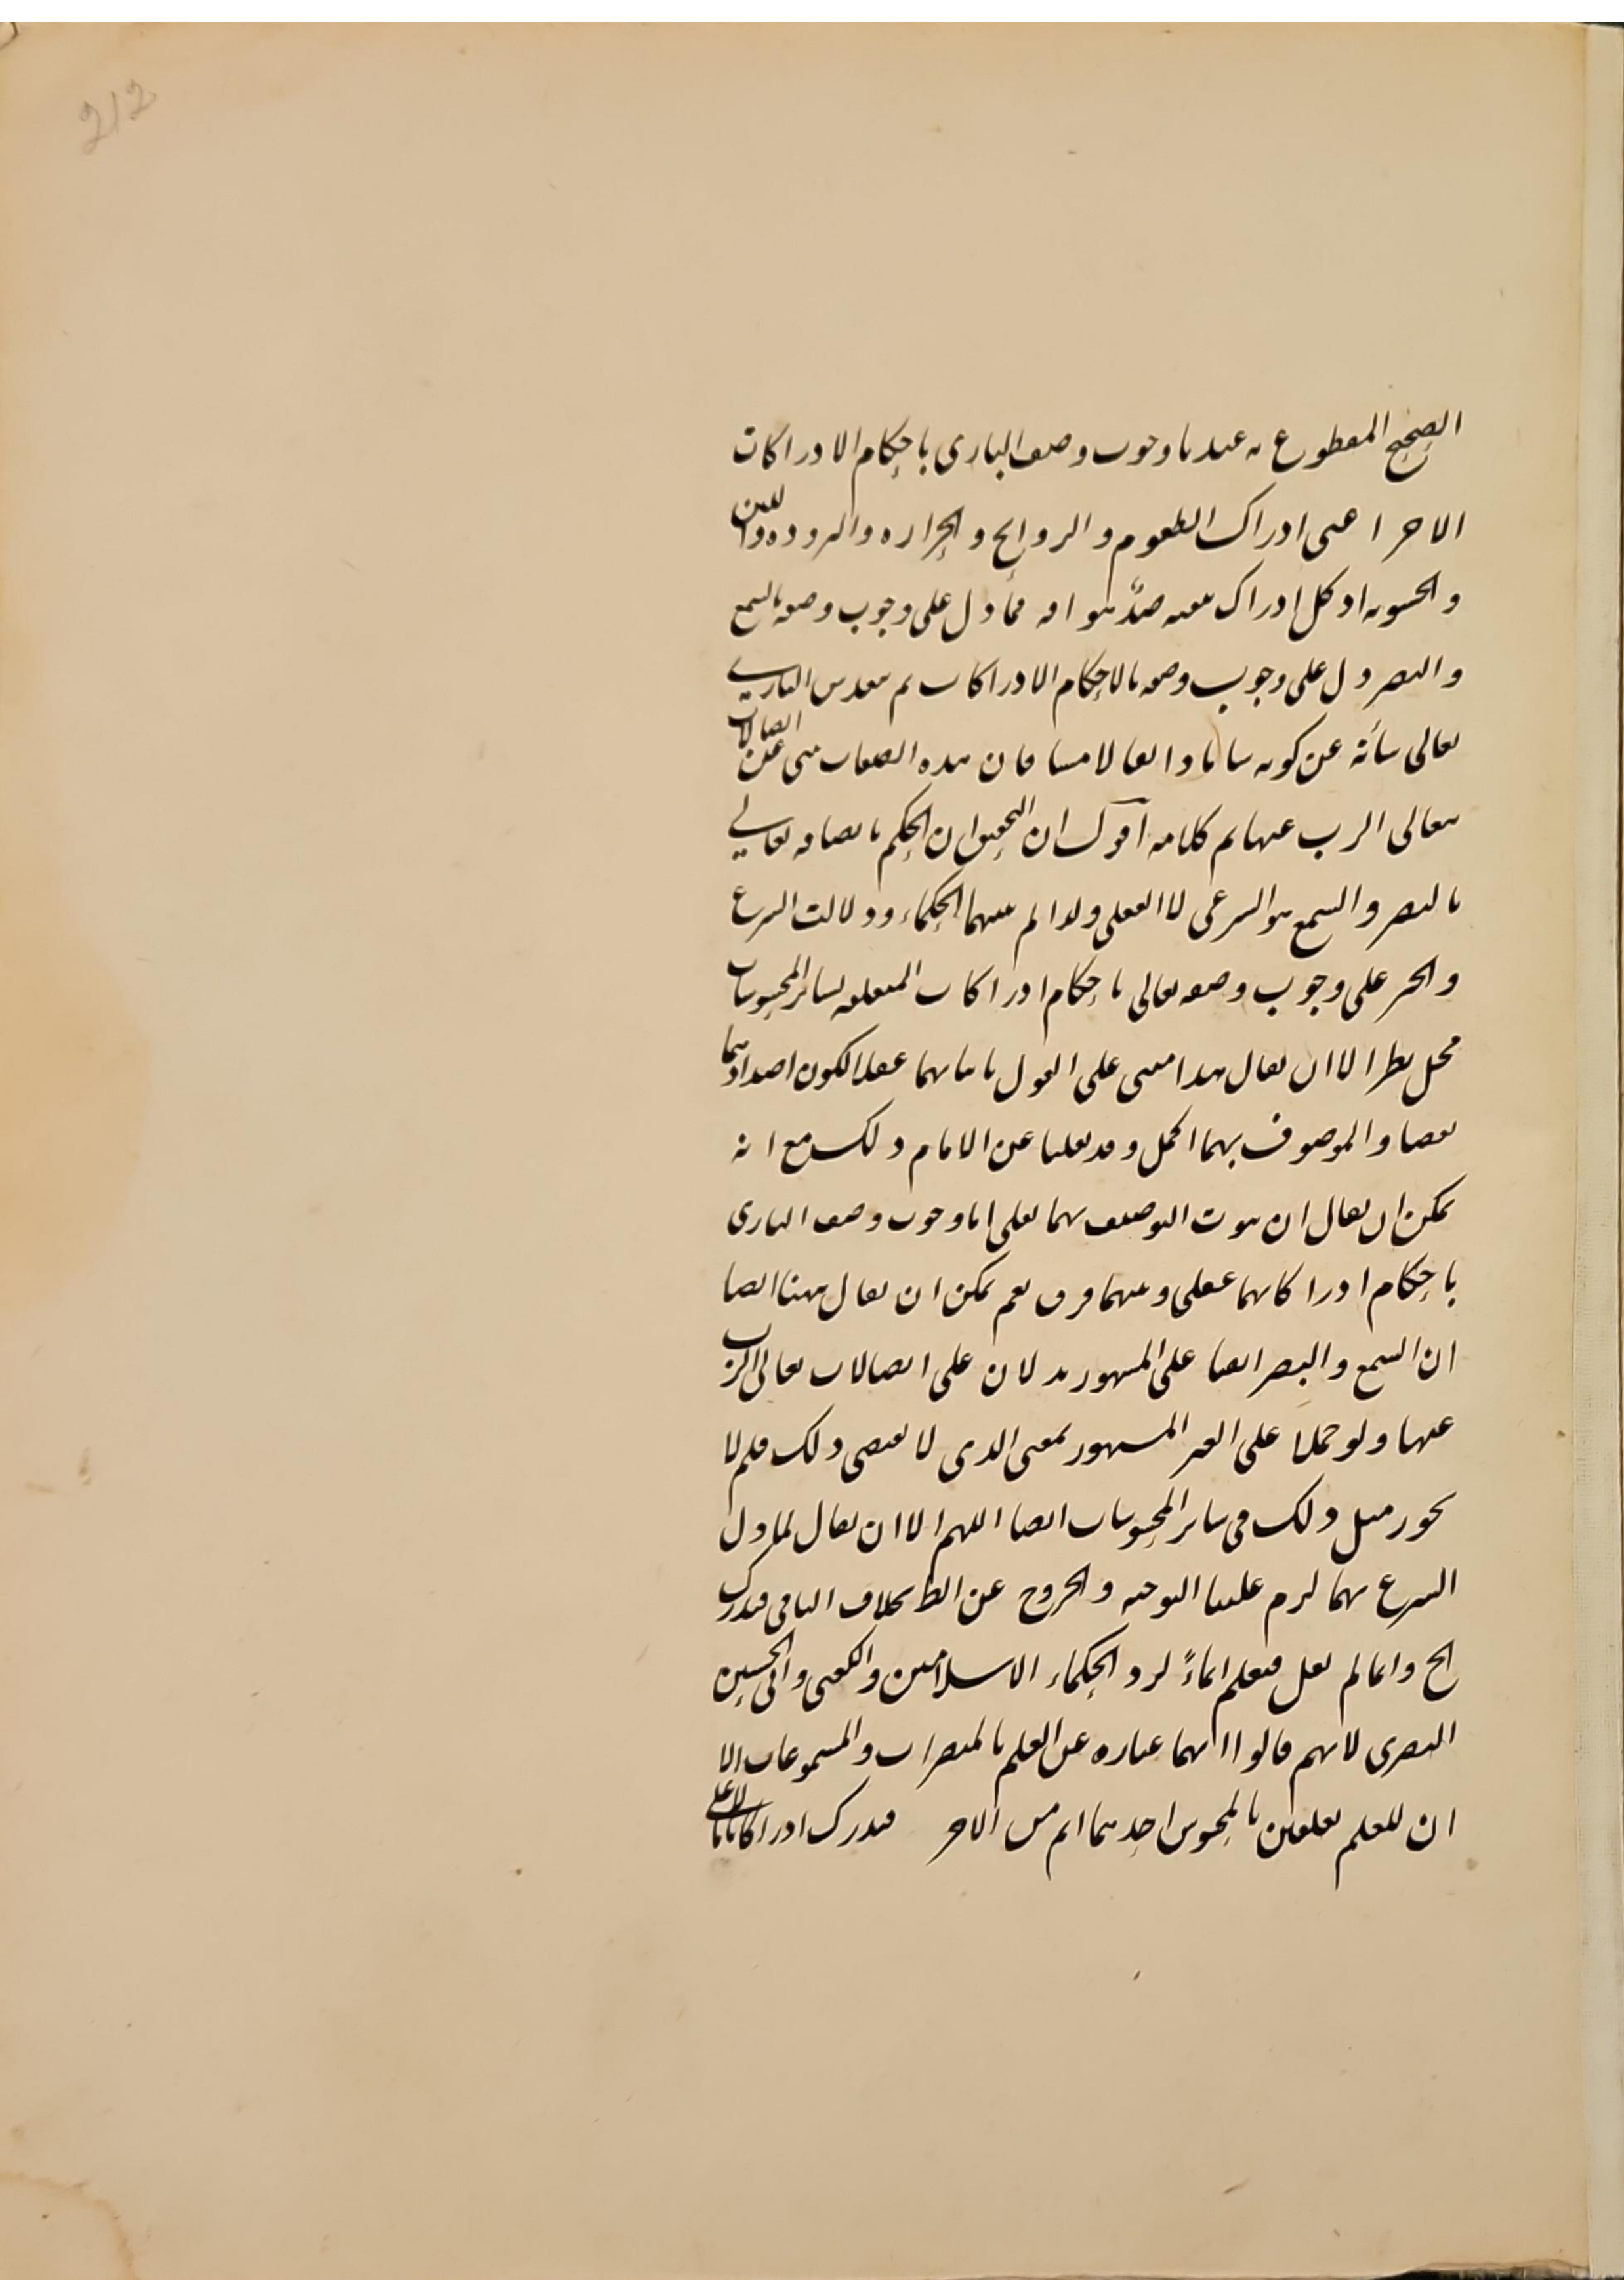 212
الصحيح المقطوع به عندنا وجوب وصف الباري باحكام الادراكات
الاخر اعنى ادراك الطعوم والروايح والحراره والبروده واللين
والخشونه اذ كل ادراك يعقبه ضدّ هو افه فما دل على وجوب وصفه بالسمع
والبصر دل على وجوب وصفه بالاحكام الادراكات ثم يتقدس الباري
تعالى شأنه عن كونه شاما ذائقا لامسا فان هذه الصفات تنبى عن اتصالات
يتعالى الرب عنها تم كلامه اقول ان التحقيق ان الحكم باتصافه تعالى
بالبصر والسمع هو الشرعى لا العقلى ولذا لم يثبتهما الحكماء ودلالت الشرع
والخبر على وجوب وصفه تعالى باحكام ادراكات المتعلقه بسائر المحسوسات
محل نظر الا ان يقال هذا مبنى على القول باثباتهما عقلا لكون اضدادهما
نقصا والموصوف بهما اكمل وقد نقلنا عن الامام ذلك مع انه
يمكن ان يقال ان ثبوت التوصيف بهما نقلى اما وجوب وصف البارى
باحكام ادراكاتهما عقلى وبينهما فرق نعم يمكن ان يقال ههنا ايضا
ان السمع والبصر ايضا على المشهور يدلان على اتصالات تعالى الرب
عنها ولو حملنا على الغير المشهور بمعنى الذى لا يقتضى ذلك فلم لا
يجوز مثل ذلك فى سائر المحسوسات ايضا اللهم الا ان يقال لما دل
الشرع بهما لزم علينا التوجيه والخروج عن الظ بخلاف الباقى فيدرك
الخ وانما لم يقل فيعلم ايماءً لرد الحكماء الاسلاميين والكعبى وابى الحسين
البصرى لانهم قالوا انهما عباره عن العلم بالمبصرات والمسموعات الا
ان للعلم تعلقين بالمحسوس احدهما اتم من الاخر فيدرك ادراكا تاما لا على